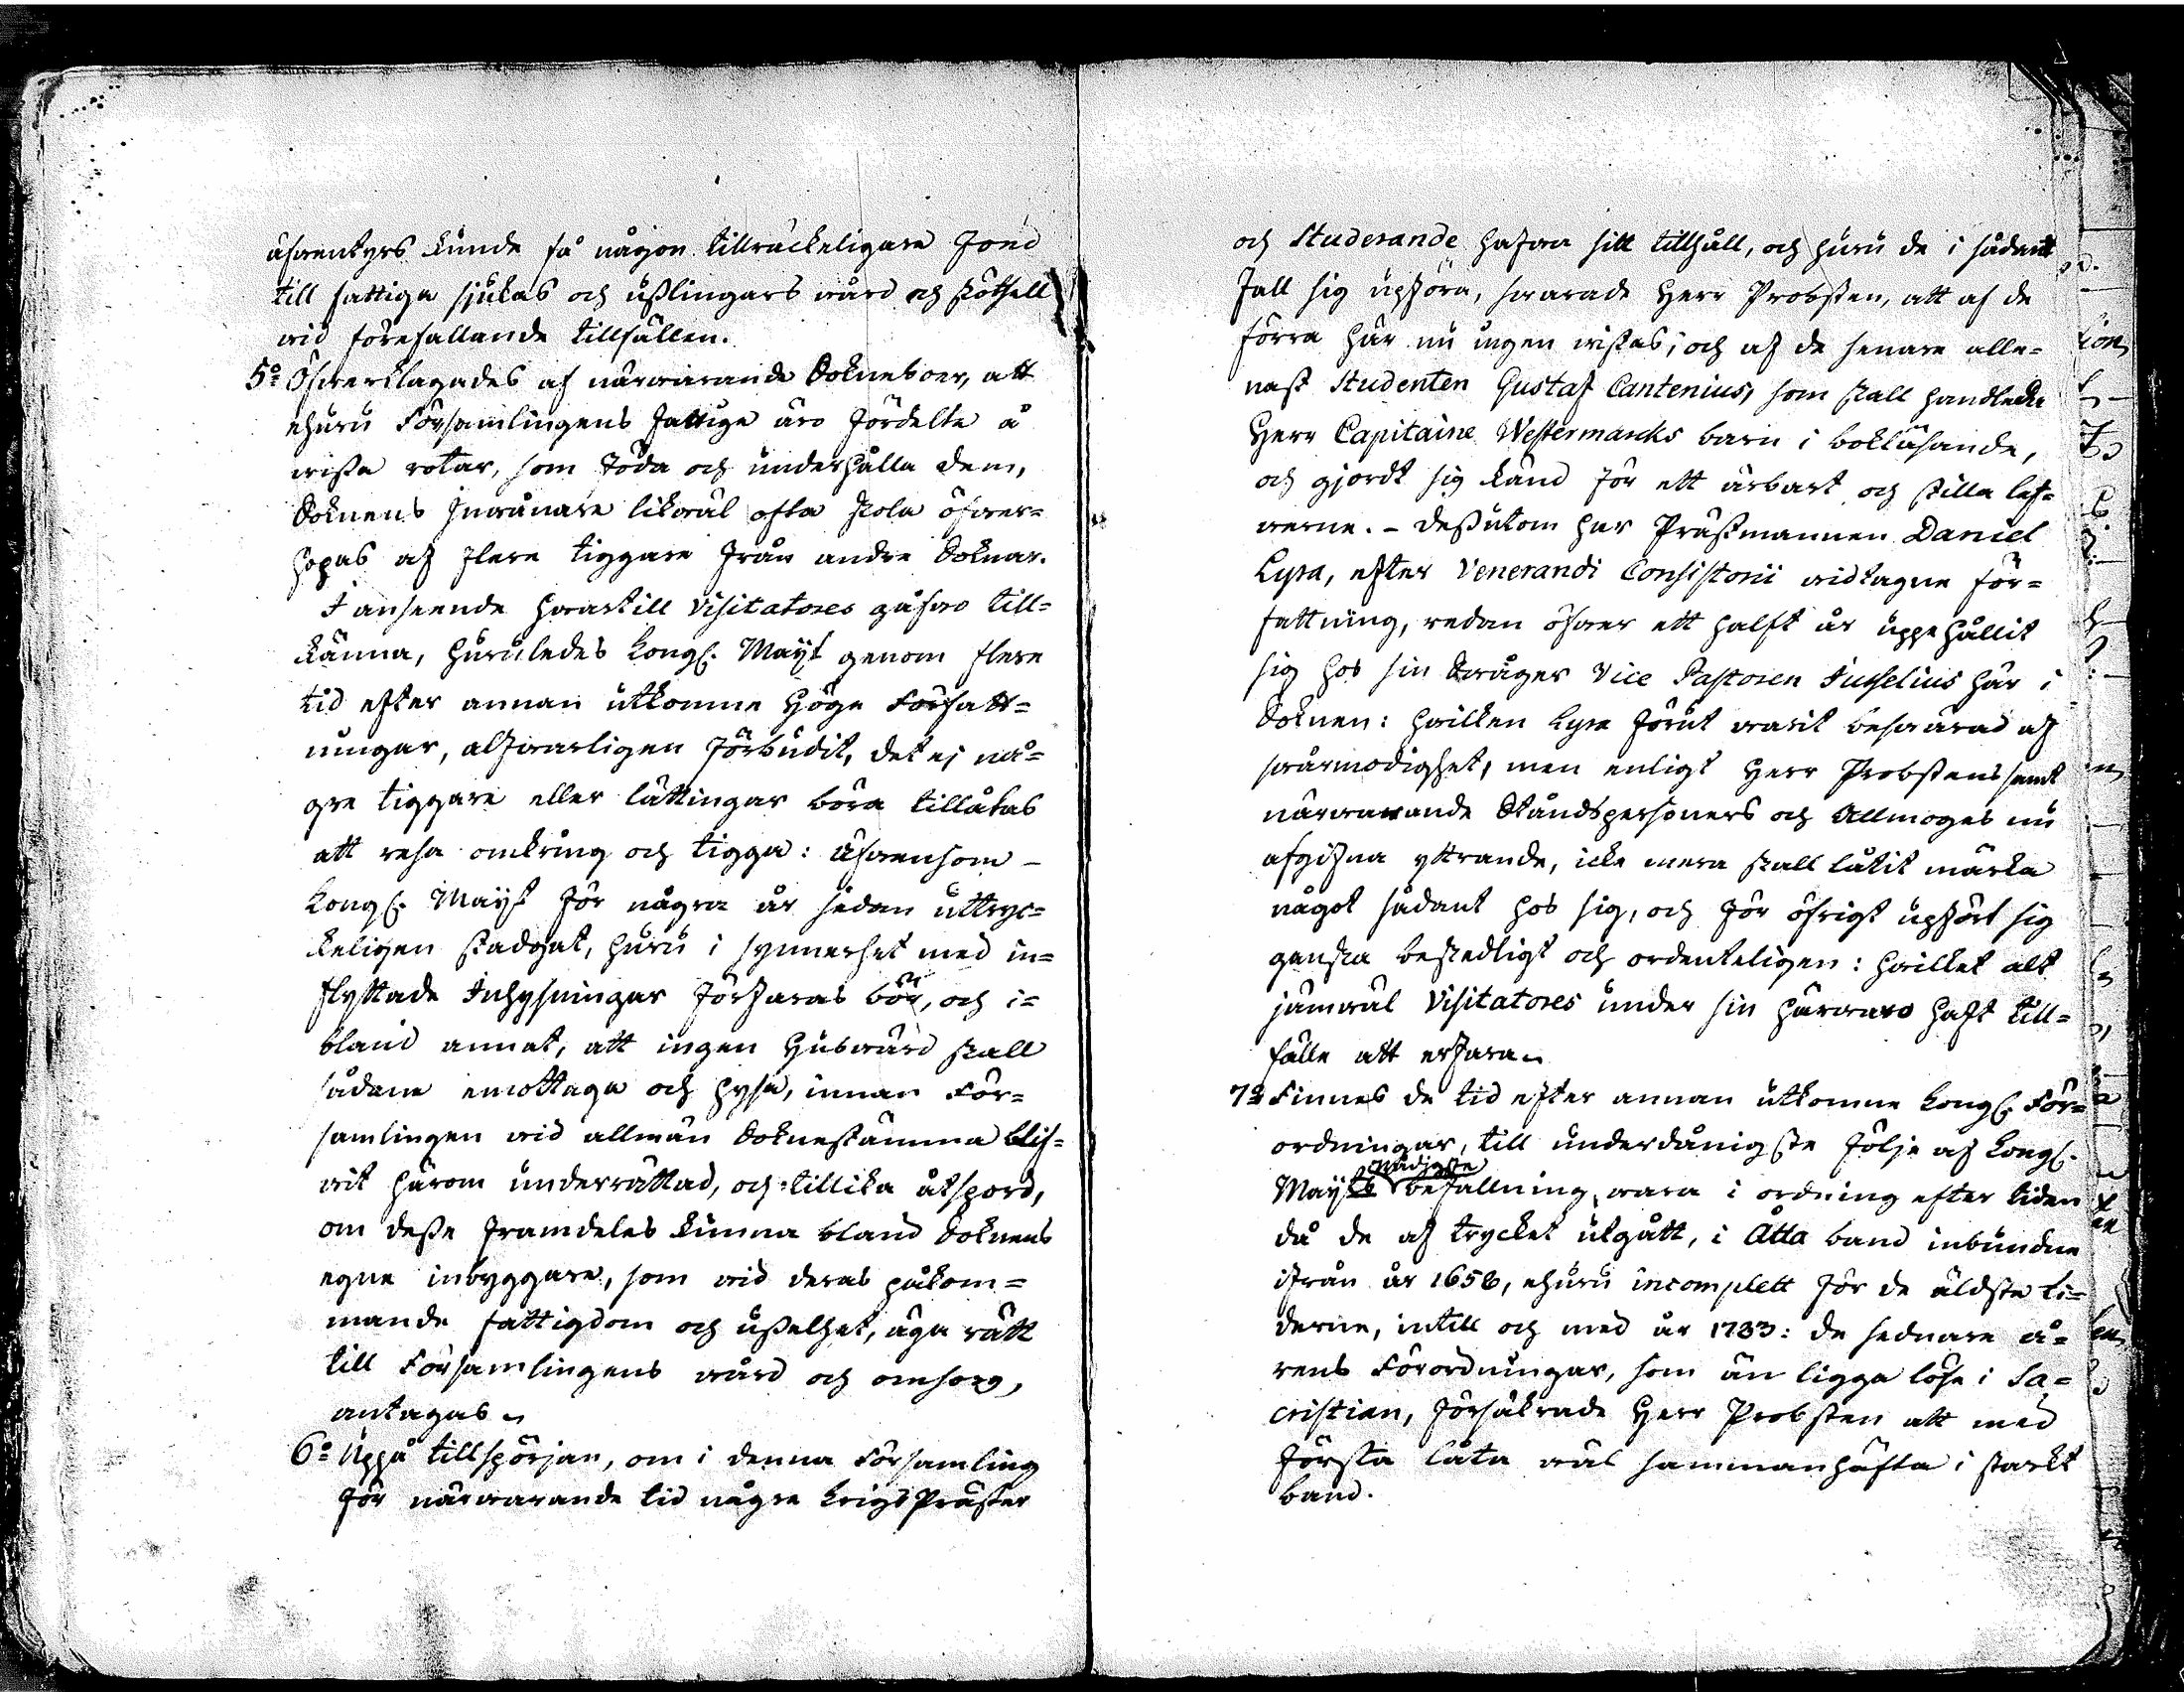 äfventyrs kunde få någon tillräckeligare Fond
till fattiga sjukas och uslingars vård och skötsell
vid förefallande tillfällen.
5:o Öfverklagades af närvarande Sokneboer, att
ehuru Församlingens Fattige äro fördelte å
vissa rotar, som föda och underhålla dem,
Soknens Invånare likväl ofta skola öfver=
hopas af flere tiggare från andre Soknar.
I anseende hvartill Visitatores gåfvo till=
känna, huruledes Kongl. Mayt genom flere
tid efter annan utkomne Höge Författ=
ningar, alfvarligen förbudit, det ej nå=
gre tiggare eller lättingar böra tillåtas
att resa omkring och tigga: äfvensom –
Kongl. Mayt för några år sedan uttryc=
keligen stadgat, huru i synnerhet med in=
flyttade Inhysningar förfaras bör, och i=
bland annat, att ingen Husvärd skall
sådane emottaga och hysa, innan För=
samlingen vid allmän Soknestämma blif=
vit härom underrättad, och tillika åtspord,
om desse framdeles kunna bland Soknens
egne inbyggare, som vid deras påkom=
mande fattigdom och uselhet, äga rätt
till Församlingens vård och omsorg,
antagas.
6:o Uppå tillspörjan, om i denna Församling
för närvarande tid någre Krigs Präster
och Studerande hafva sitt tillhåll, och huru de i sådant
fall sig upföra, svarade Herr Probsten, att af de
förra här nu ingen vistas; och af de senare alle=
nast Studenten Gustaf Cantenius, som skall handleda
Herr Capitaine Westermarcks barn i bokläsande,
och gjordt sig känd för ett ärbart och stilla lef=
verne. – Dessutom har Prästmannen Daniel
Lyra, efter Venerandi Consistorii vidtagne för=
fattning, redan öfver ett halft år uppehållit
sig hos sin Svåger Vice Pastoren Juselius här i
Soknen: hvilken Lyra förut varit besvärad af
svårmodighet, men enligt Herr Probstens samt
närvarande Ståndspersoners och Allmoges nu
afgifna yttrande, icke mera skall låtit märka
något sådant hos sig, och för öfrigt upfört sig
ganska beskedligt och ordenteligen: hvilket alt
jämväl Visitatores under sin härvaro haft till=
fälle att erfara.
7:o Finnes de tid efter annan utkomne Kongl. För=
ordningar, till underdånigste följe af Kongl.
nådigste
Mayts befallning, vara i ordning efter tiden
då de af trycket utgått, i Åtta band inbundne
ifrån år 1656, ehuru incomplett för de äldste ti=
derne, intill och med år 1783: de sednare å=
rens Förordningar, som än ligga löse i Sa=
cristian, försäkrade Herr Probsten att med
första låta väl sammanhäfta i starkt
band.